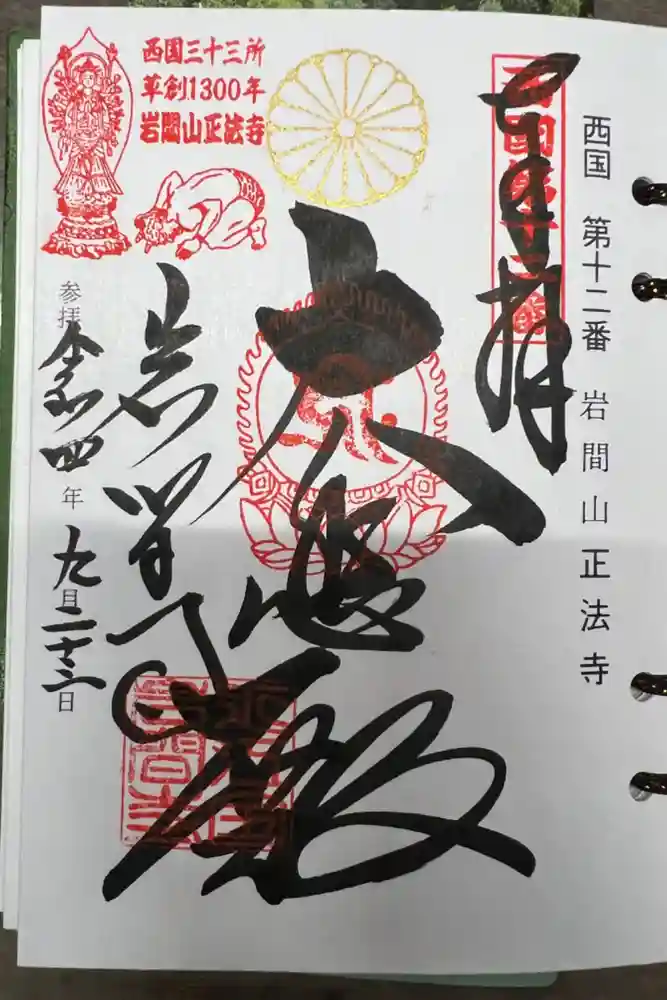 西国 第十二番 岩間山正法寺
奉拝
西国第十二番
大悲殿
岩間寺
西国三十三所
草創1300年
岩間山正法寺
参拝 令四年 九月二十三日